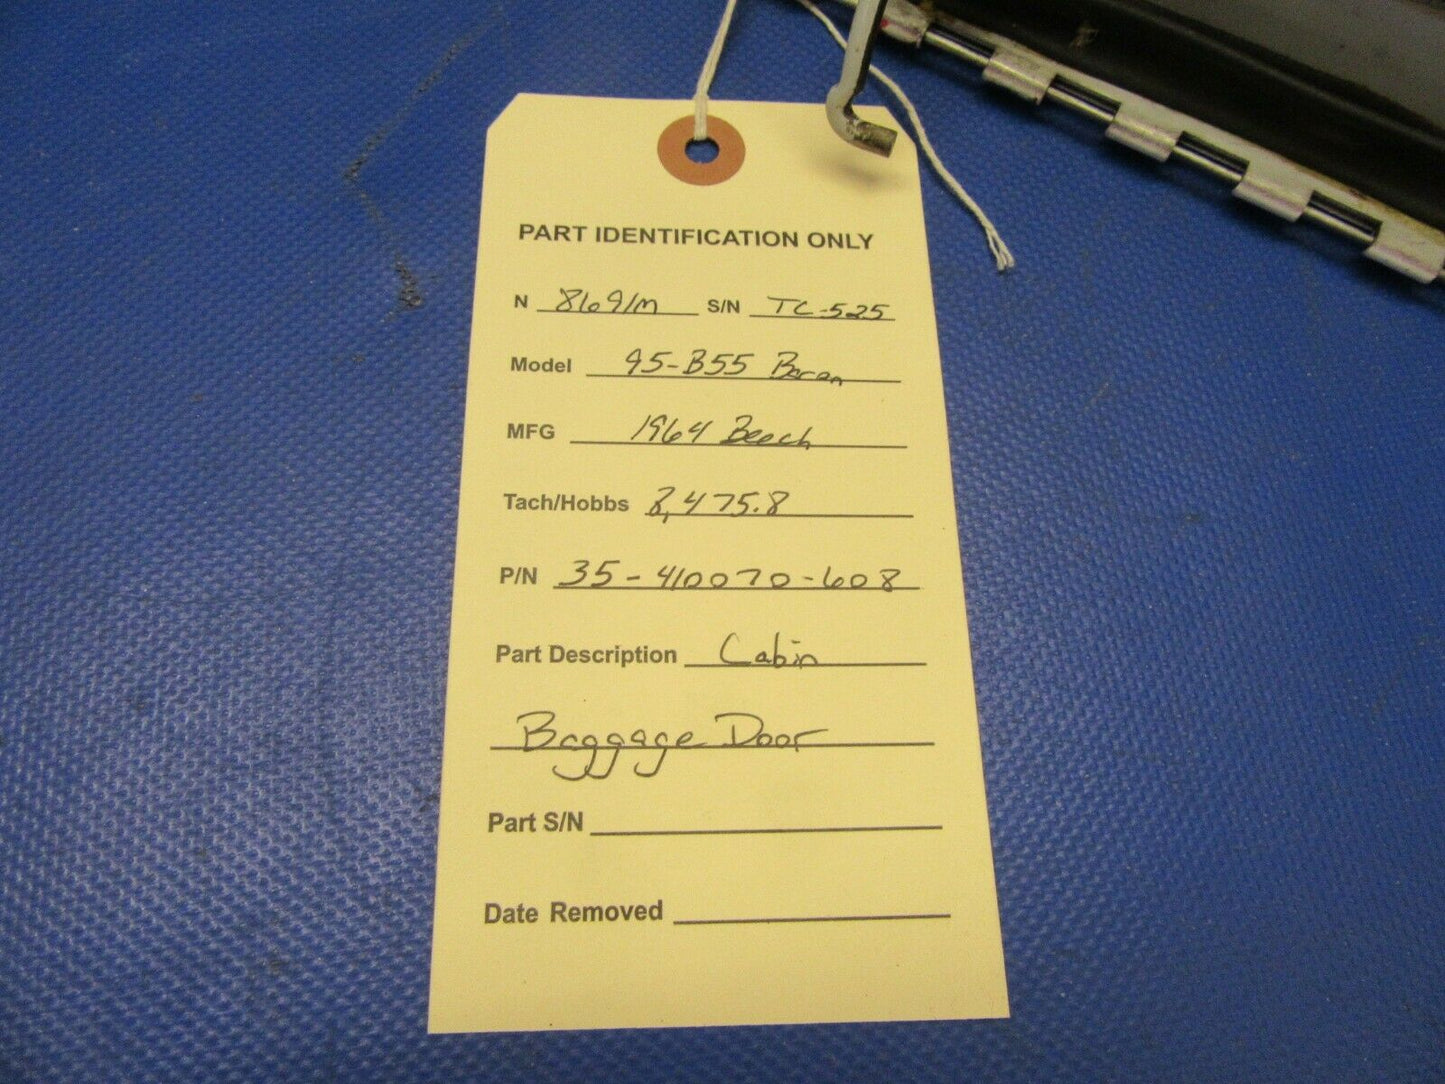 PART IDENTIFICATION ONLY
N 8691M S/N TC-525
Model 95-B55 Baron
MFG 1964 Beech
Tach/Hobbs 8,475.8
P/N 35-410070-608
Part Description Cabin
Baggage Door
Part S/N
Date Removed